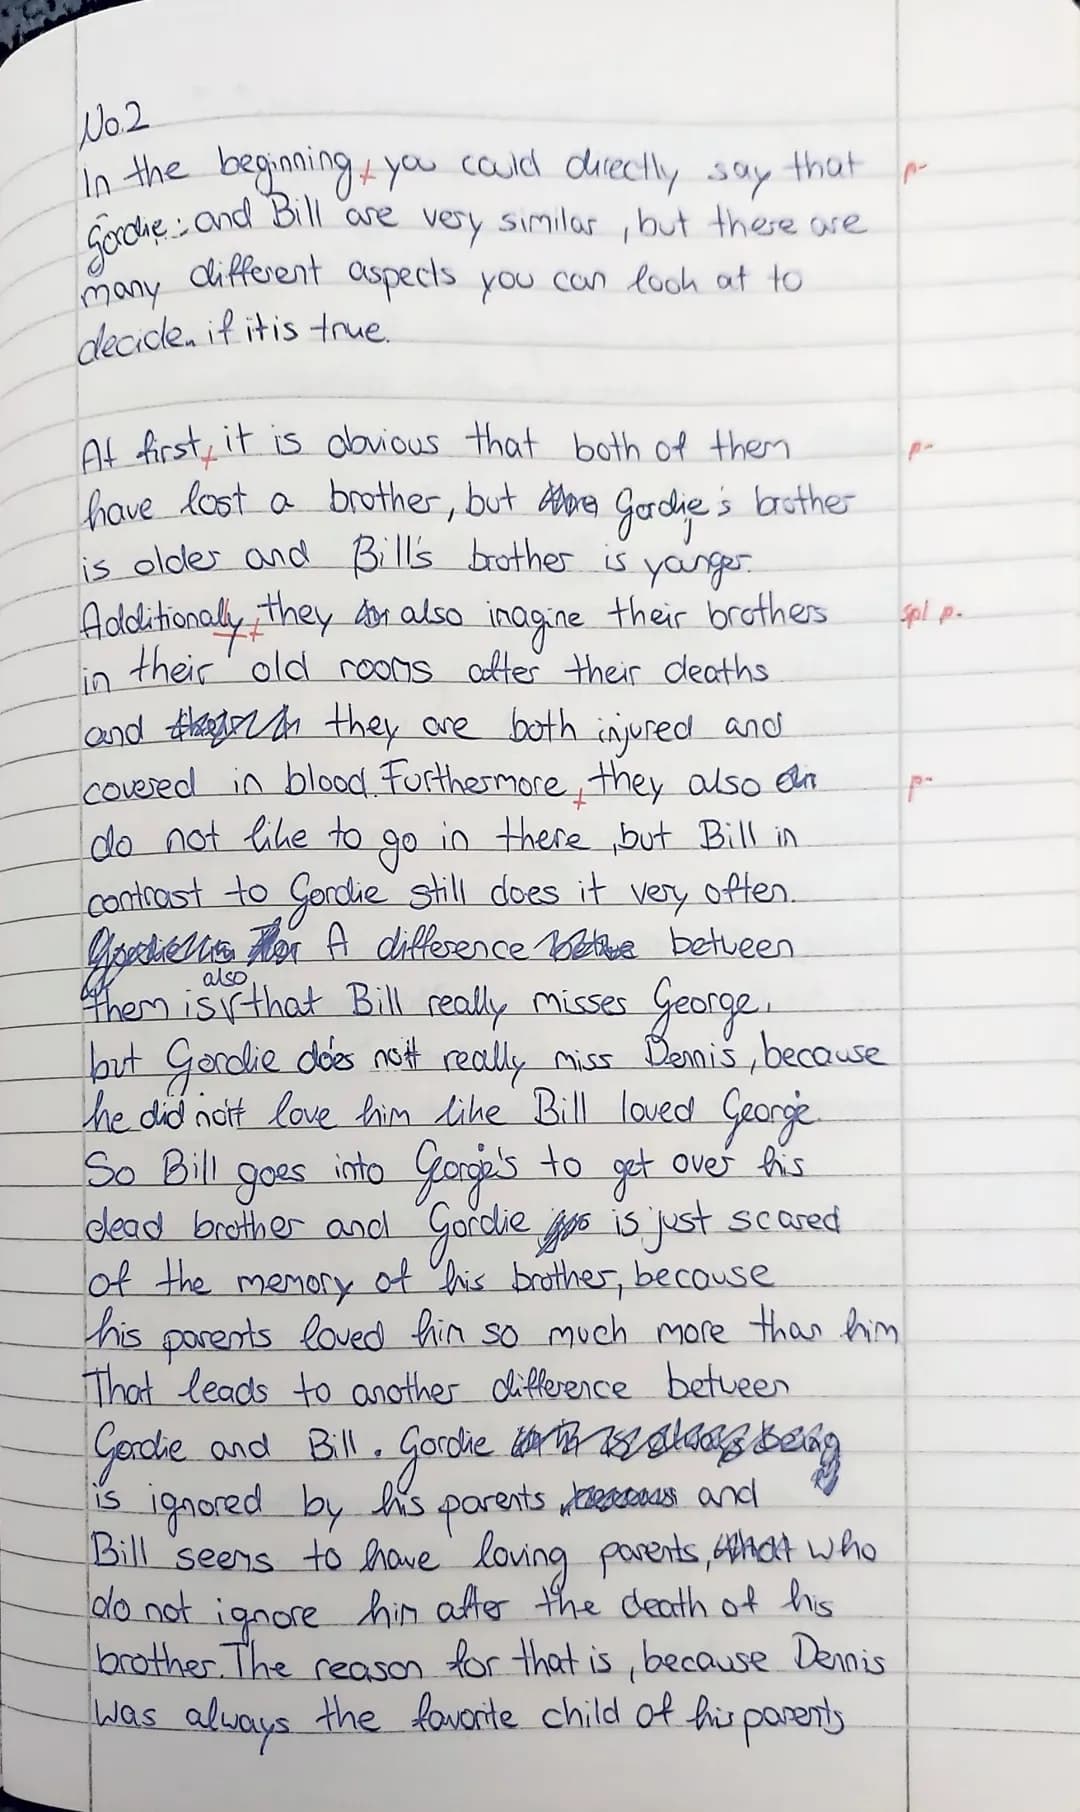 No.2
In the beginning, you could directly say that p-
Gordie and Bill are very similar, but there are
many different aspects you can look at to
decide if it is true.
At first, it is obvious that both of them p-
have lost a brother, but Gordie's brother
is older and Bill's brother is younger.
Additionally, they also imagine their brothers spl p-
in their old rooms after their deaths
and they are both injured and
covered in blood. Furthermore, they also p-
do not like to go in there, but Bill in
contrast to Gordie still does it very often.
A difference between
also
them is that Bill really misses George,
but Gordie does not really miss Dennis, because
he did not love him like Bill loved George.
So Bill goes into George's to get over his
dead brother and Gordie is just scared
of the memory of his brother, because
his parents loved him so much more than him
That leads to another difference between
Gordie and Bill. Gordie
is ignored by his parents and
Bill seems to have loving parents, who
do not ignore him after the death of his
brother. The reason for that is, because Dennis
was always the favorite child of his parents